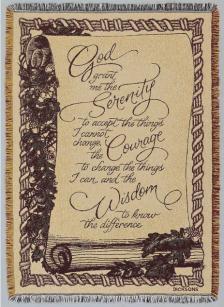 God
grant
me the
Serenity
to accept the things
I cannot
change, the
Courage
to change the things
I can, and the
Wisdom
to know
the difference